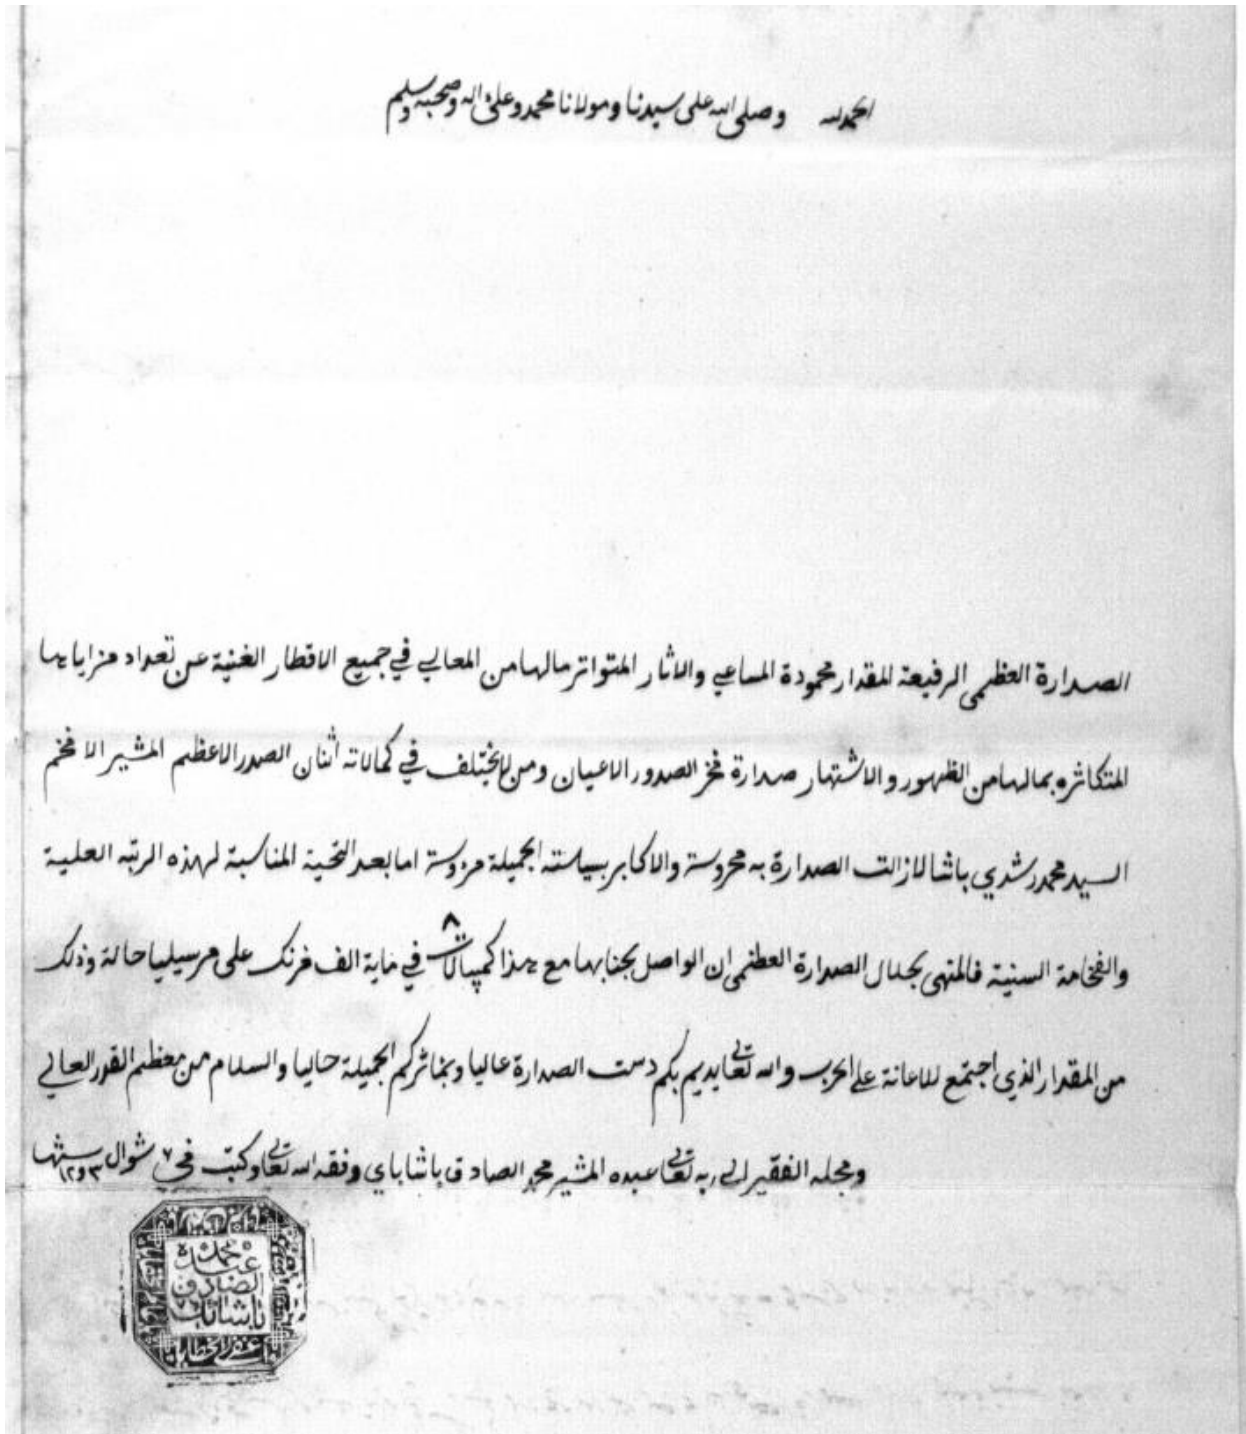 الحمد لله وصلى الله على سيدنا ومولانا محمد وعلى اله وصحبه وسلم
الصدارة العظمى الرفيعة المقدار محمودة المساعي والاثار المتواتر مالها من المعالي في جميع الاقطار الغنية عن تعداد مزاياها
المتكاثره بمالها من الظهور والاشتهار صدارة فخر الصدور الاعيان ومن لا يختلف في كمالاته اثنان الصدر الاعظم المشير الافخم
السيد محمد رشدي باشا لازالت الصدارة به محروسة والاكابر بسياسته الجميلة مرءوسة اما بعد التحية المناسبة لهذه الرتبه العلية
والفخامة السنية فالمنهى لجلال الصدارة العظمى ان الواصل لجنابها مع هذا كمپيالات ٨ في ماية الف فرنك على مرسيليا حالة وذلك
من المقدار الذي اجتمع للاعانة على الحرب والله تعالى يديم بكم دست الصدارة عاليا وبمئاثركم الجميلة حاليا والسلام من معظم القدر العالي
ومجله الفقير الى ربه تعالى عبده المشير محمد الصادق باشا باي وفقه الله تعالى وكتب في ٧ شوال سنة ١٢٩٣
عبده محمد
الصادق
باشا باي